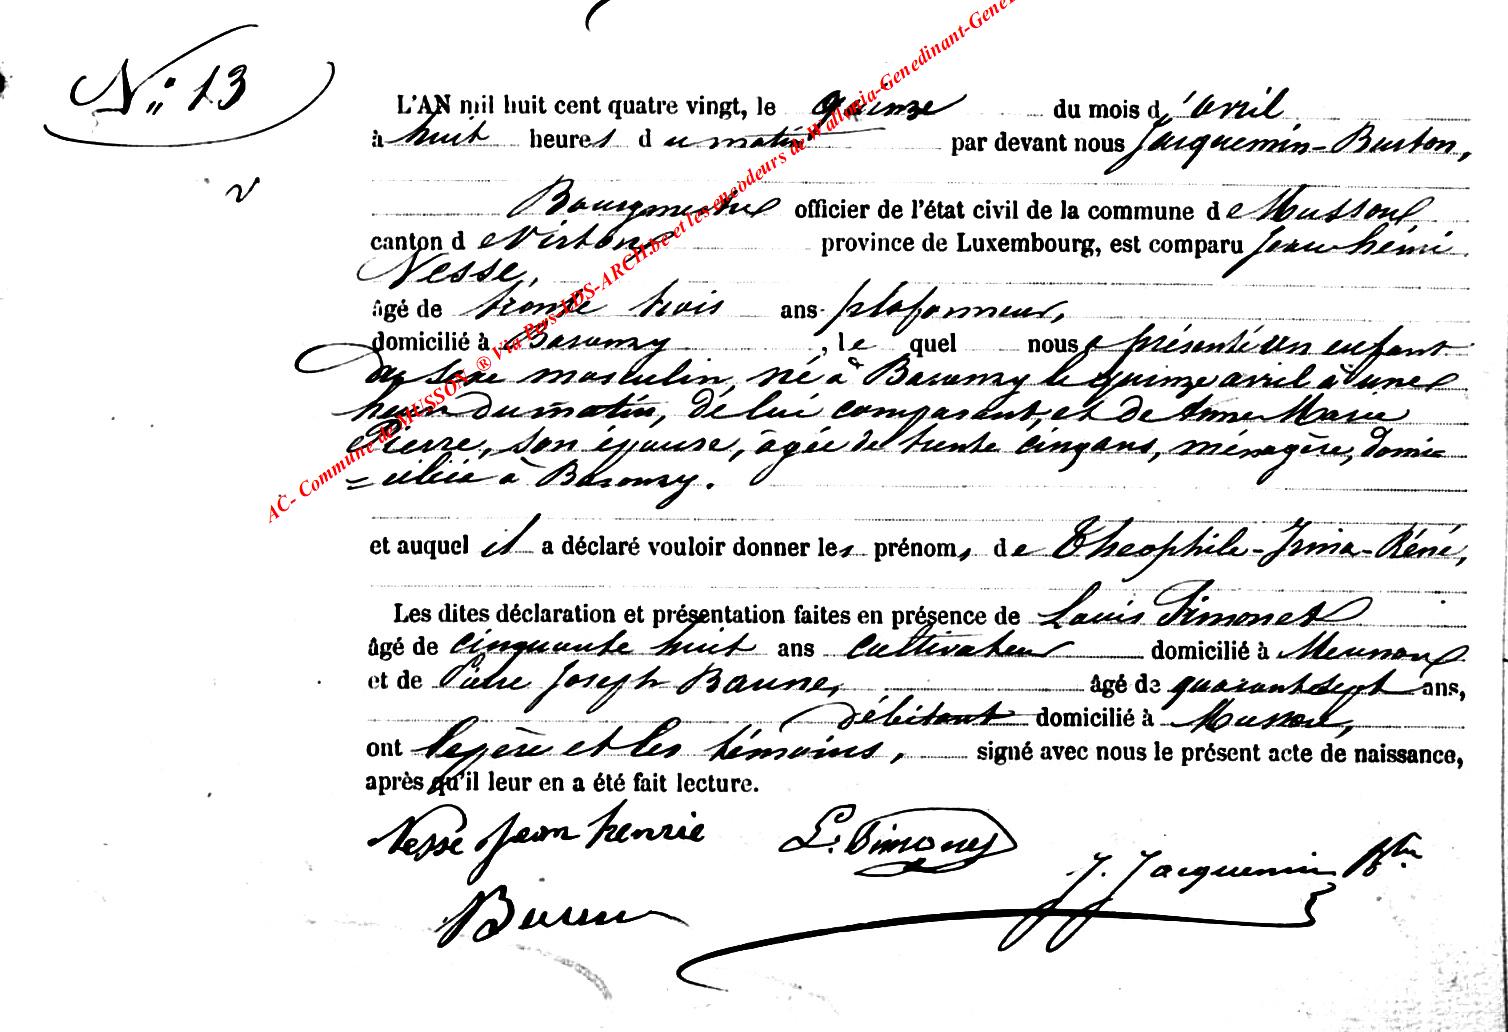 N° 13
L'AN mil huit cent quatre vingt, le quinze du mois d'avril
à huit heures du matin par devant nous Jacquemin-Burton,
Bourgmestre officier de l'état civil de la commune de Musson
canton de Virton province de Luxembourg, est comparu Jean Hénri
Nesse,
âgé de trente trois ans plafonneur,
domicilié à Baranzy, le quel nous a présenté un enfant
du sexe masculin, né à Baranzy le quinze avril à une
heure du matin, de lui comparant, et de Anne Marie
Pierre, son épouse, âgée de trente cinq ans, ménagère, domi=
=ciliée à Baranzy.
et auquel il a déclaré vouloir donner les prénoms de Théophile-Irma-Réné,
Les dites déclaration et présentation faites en présence de Louis Simonet
âgé de cinquante huit ans cultivateur domicilié à Musson
et de Pierre Joseph Baune, âgé de quarante sept ans,
débitant domicilié à Musson,
ont le père et les témoins, signé avec nous le présent acte de naissance,
après qu'il leur en a été fait lecture.
Nesse jean henrie L. Simonet
J. Jacquemin Btre
AC- Commune de MUSSON ® Via Pers-LDS-ARCH.be et les encodeurs de Wallonia-Genedinant-Gene